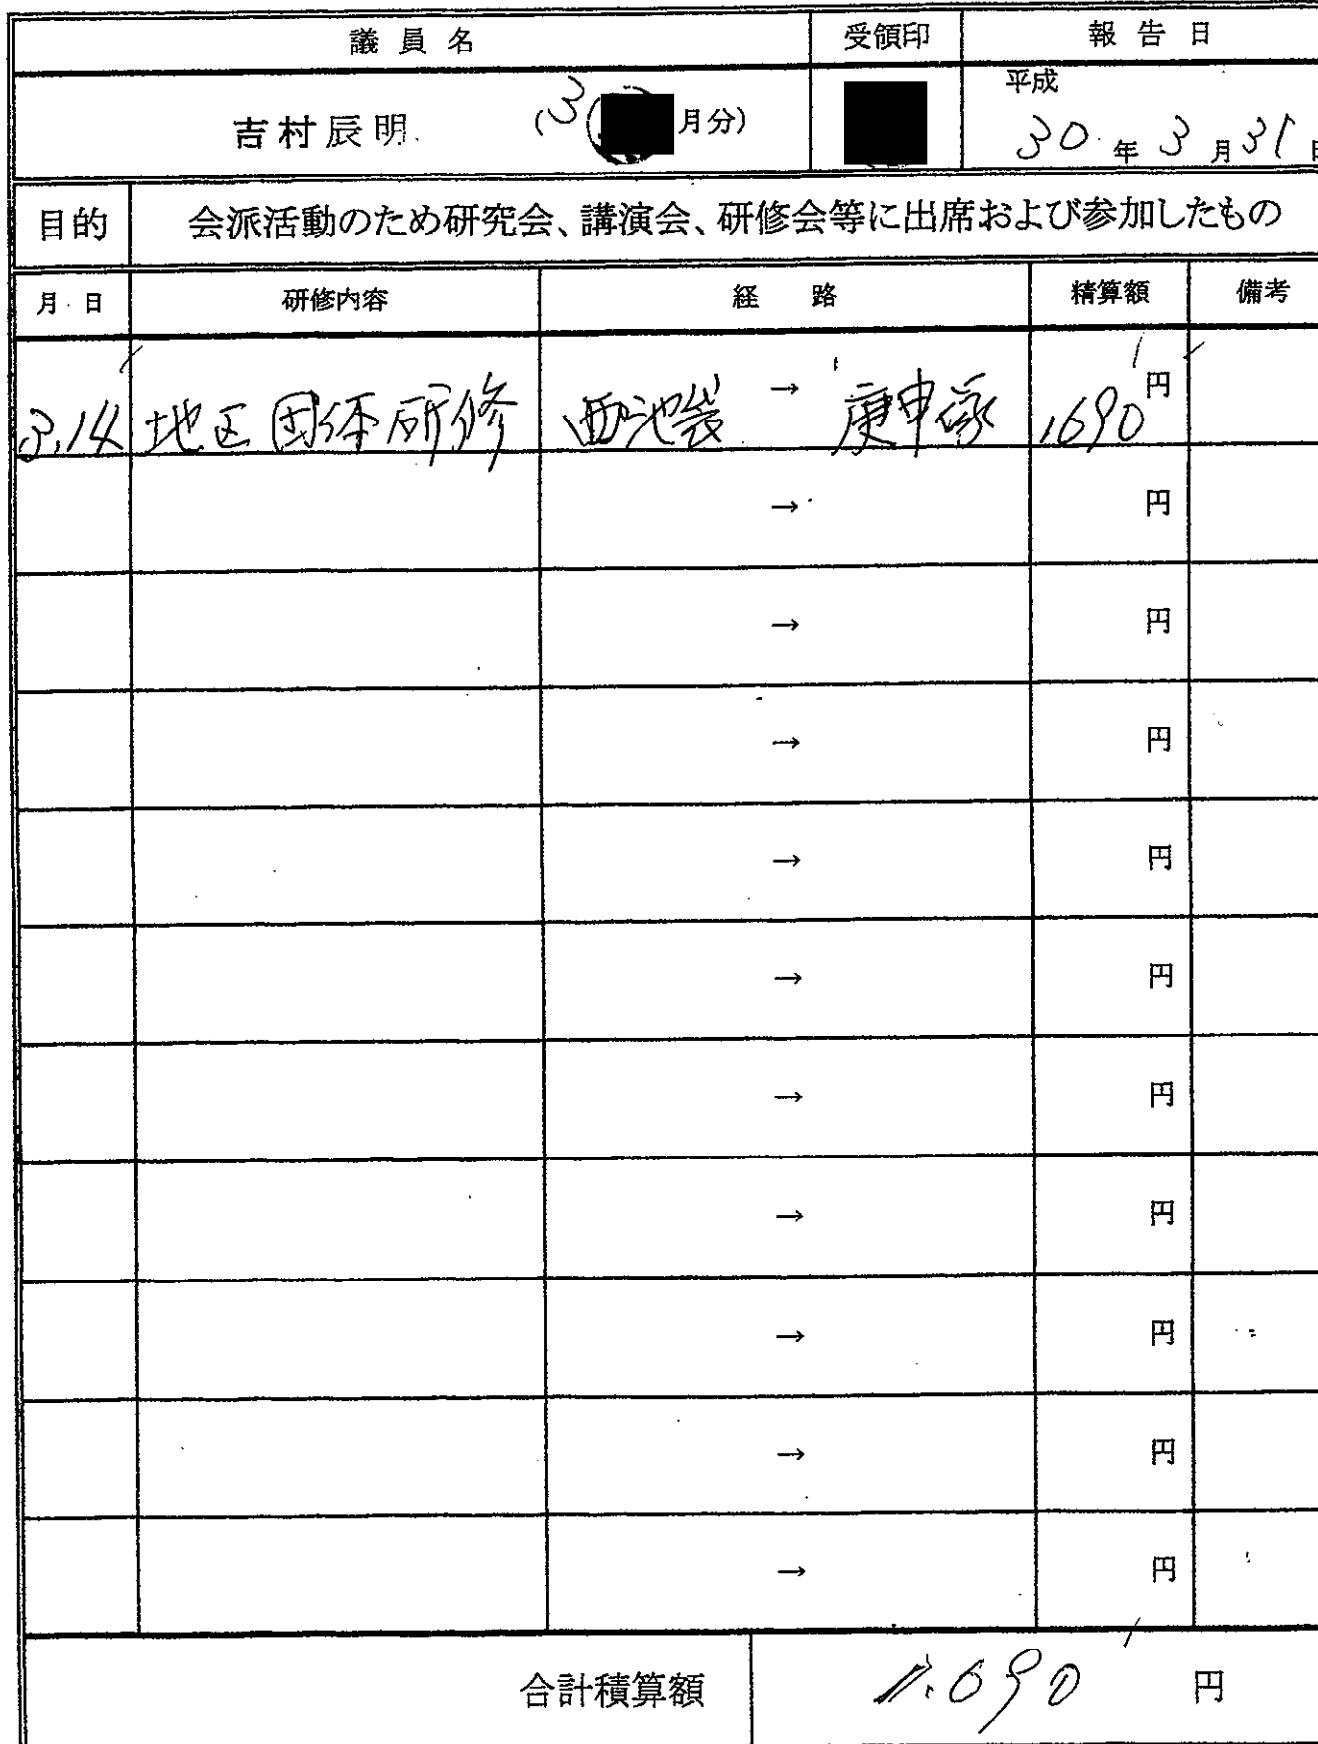 議員名 受領印 報告日
吉村辰明 (3 月分) 平成
30年3月31日
目的 会派活動のため研究会、講演会、研修会等に出席および参加したもの
月・日 研修内容 経路 精算額 備考
3.14 地区団体研修 西池袋 → 庚申塚 1,690円
→ 円
→ 円
→ 円
→ 円
→ 円
→ 円
→ 円
→ 円
→ 円
→ 円
合計積算額 1.690 円